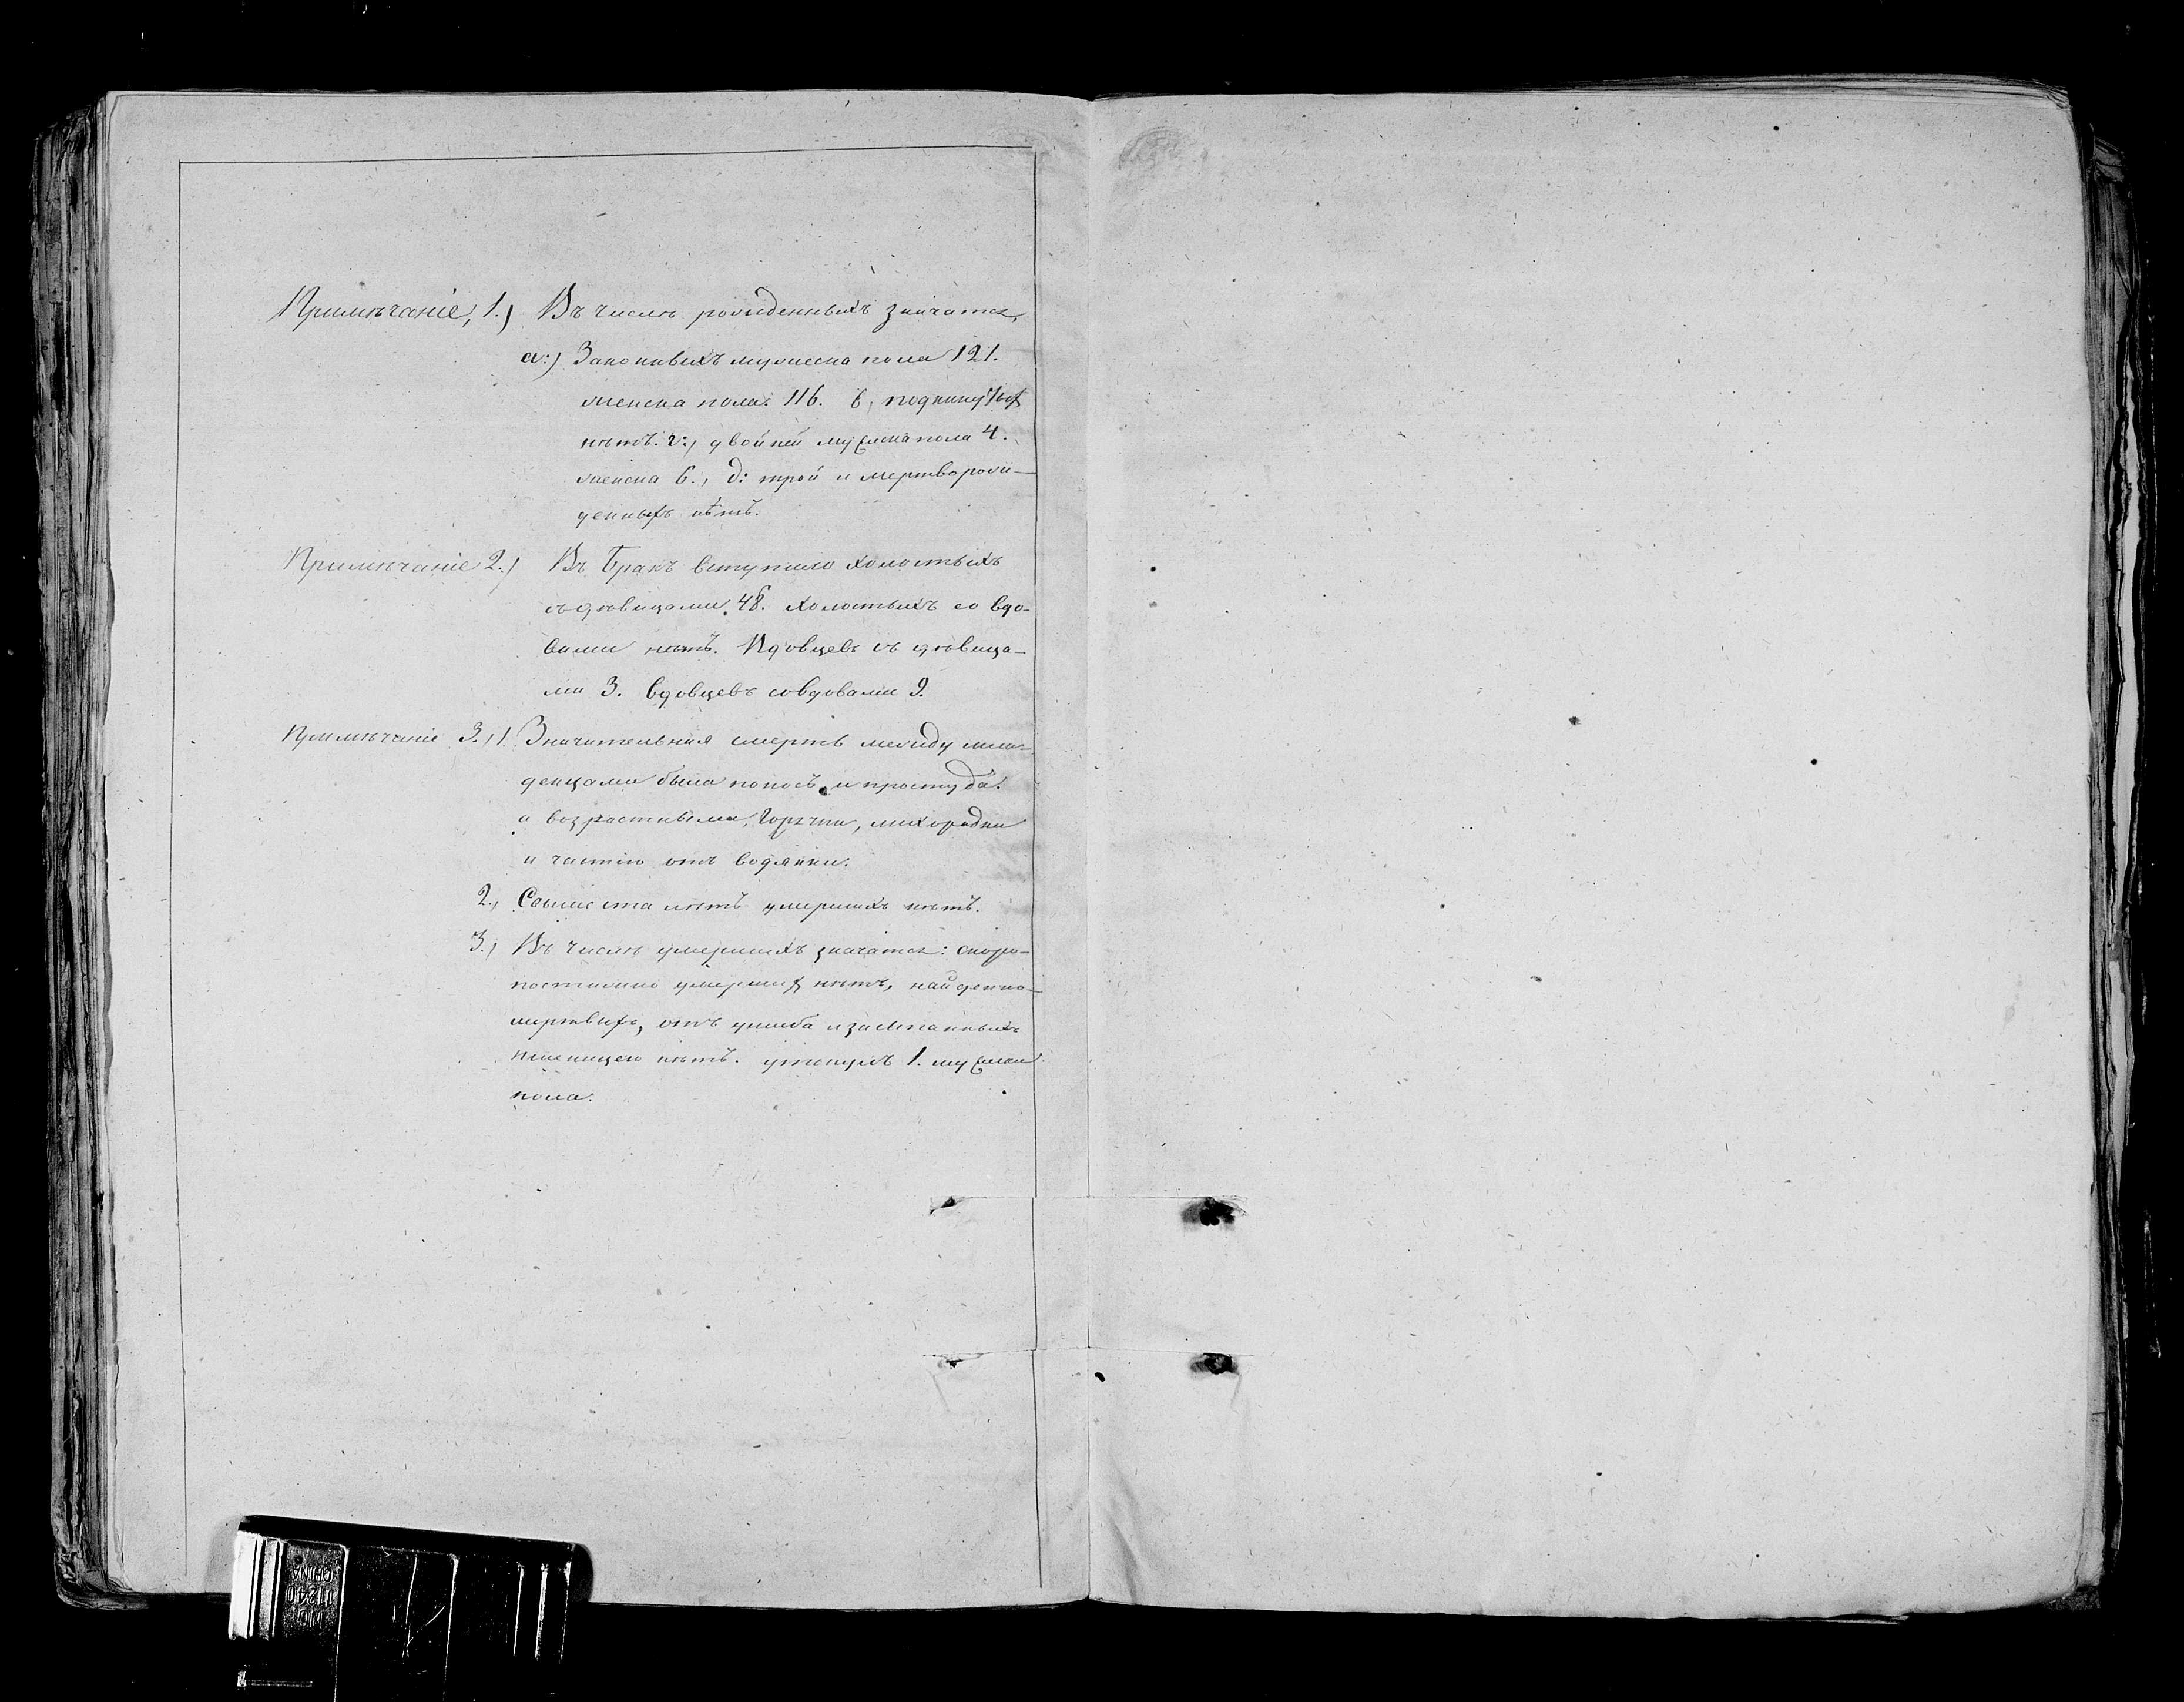 Примѣчаніе, 1.) Въ числѣ рожденныхъ значатся,
а:) Законныхъ мужеска пола 121.
женска пола: 116. б, подкинутых
нѣтъ. г:, двойней мужеска пола 4.
женска 6., д: трой и мертворож-
денныхъ нѣтъ.
Примѣчаніе 2.) Въ бракъ вступило холостыхъ
съ дѣвицами 48. холостыхъ со вдо-
вами нѣтъ. Вдовцевъ съ дѣвица-
ми 3. вдовцевъ совдовами 9.
Примѣчаніе 3.) 1. Значительная смерть между мла-
денцами была поносъ и простуда.
а возрастными, горячки, лихорадки
и частію отъ водянки.
2., Свыше ста лѣтъ умершихъ нѣтъ.
3., Въ числѣ умершихъ значатся: скоро-
постижно умерших нѣтъ, найденно-
мертвыхъ, отъ ушиба
нѣтъ. утонулъ 1. мужеска
пола.
NO 11240
CHINA